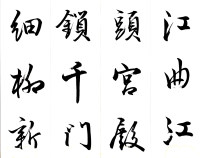 江曲江
頭宮殿
鎖千門
細柳新